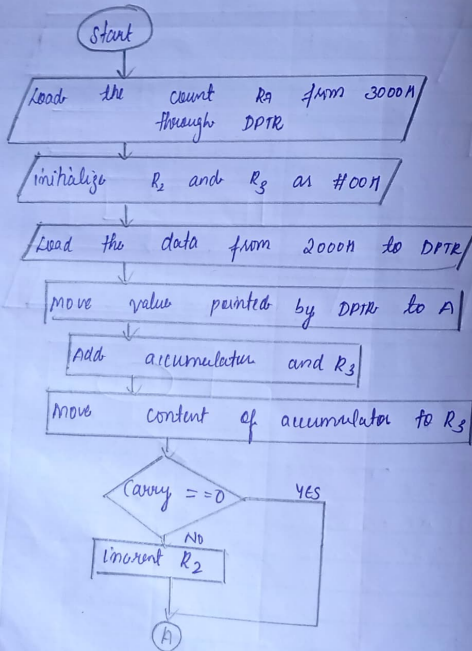 Start
Load the count R7 from 3000H
through DPTR
initialize R2 and R3 as #00H
Load the data from 2000H to DPTR
Move value pointed by DPTR to A
Add accumulator and R3
Move content of accumulator to R3
Carry ==0
YES
NO
increnet R2
A